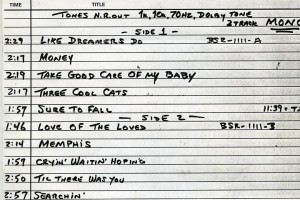 TIME TITLE
TONES N.R.OUT 1K, 10K, 70HZ, DOLBY TONE
2 TRACK MONO
— SIDE 1 —
2:29 LIKE DREAMERS DO BSR-1111-A
2:17 MONEY
2:19 TAKE GOOD CARE OF MY BABY
2:17 THREE COOL CATS
1:57 SURE TO FALL 11:39 + T
— SIDE 2 —
1:46 LOVE OF THE LOVED BSR-1111-B
2:14 MEMPHIS
1:59 CRYIN' WAITIN' HOPING
2:50 TIL THERE WAS YOU
2:57 SEARCHIN'